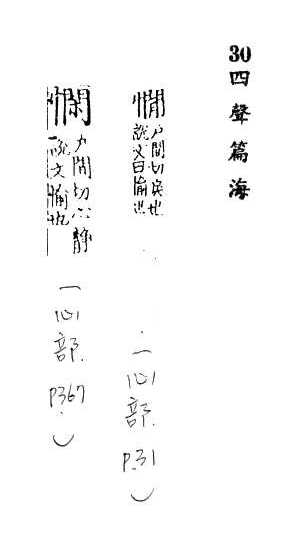 30 四聲篇海
憪
戶間切也
說文曰愉也
(心部 P.31)
戶間切心靜
說文愉也
(心部 P367)